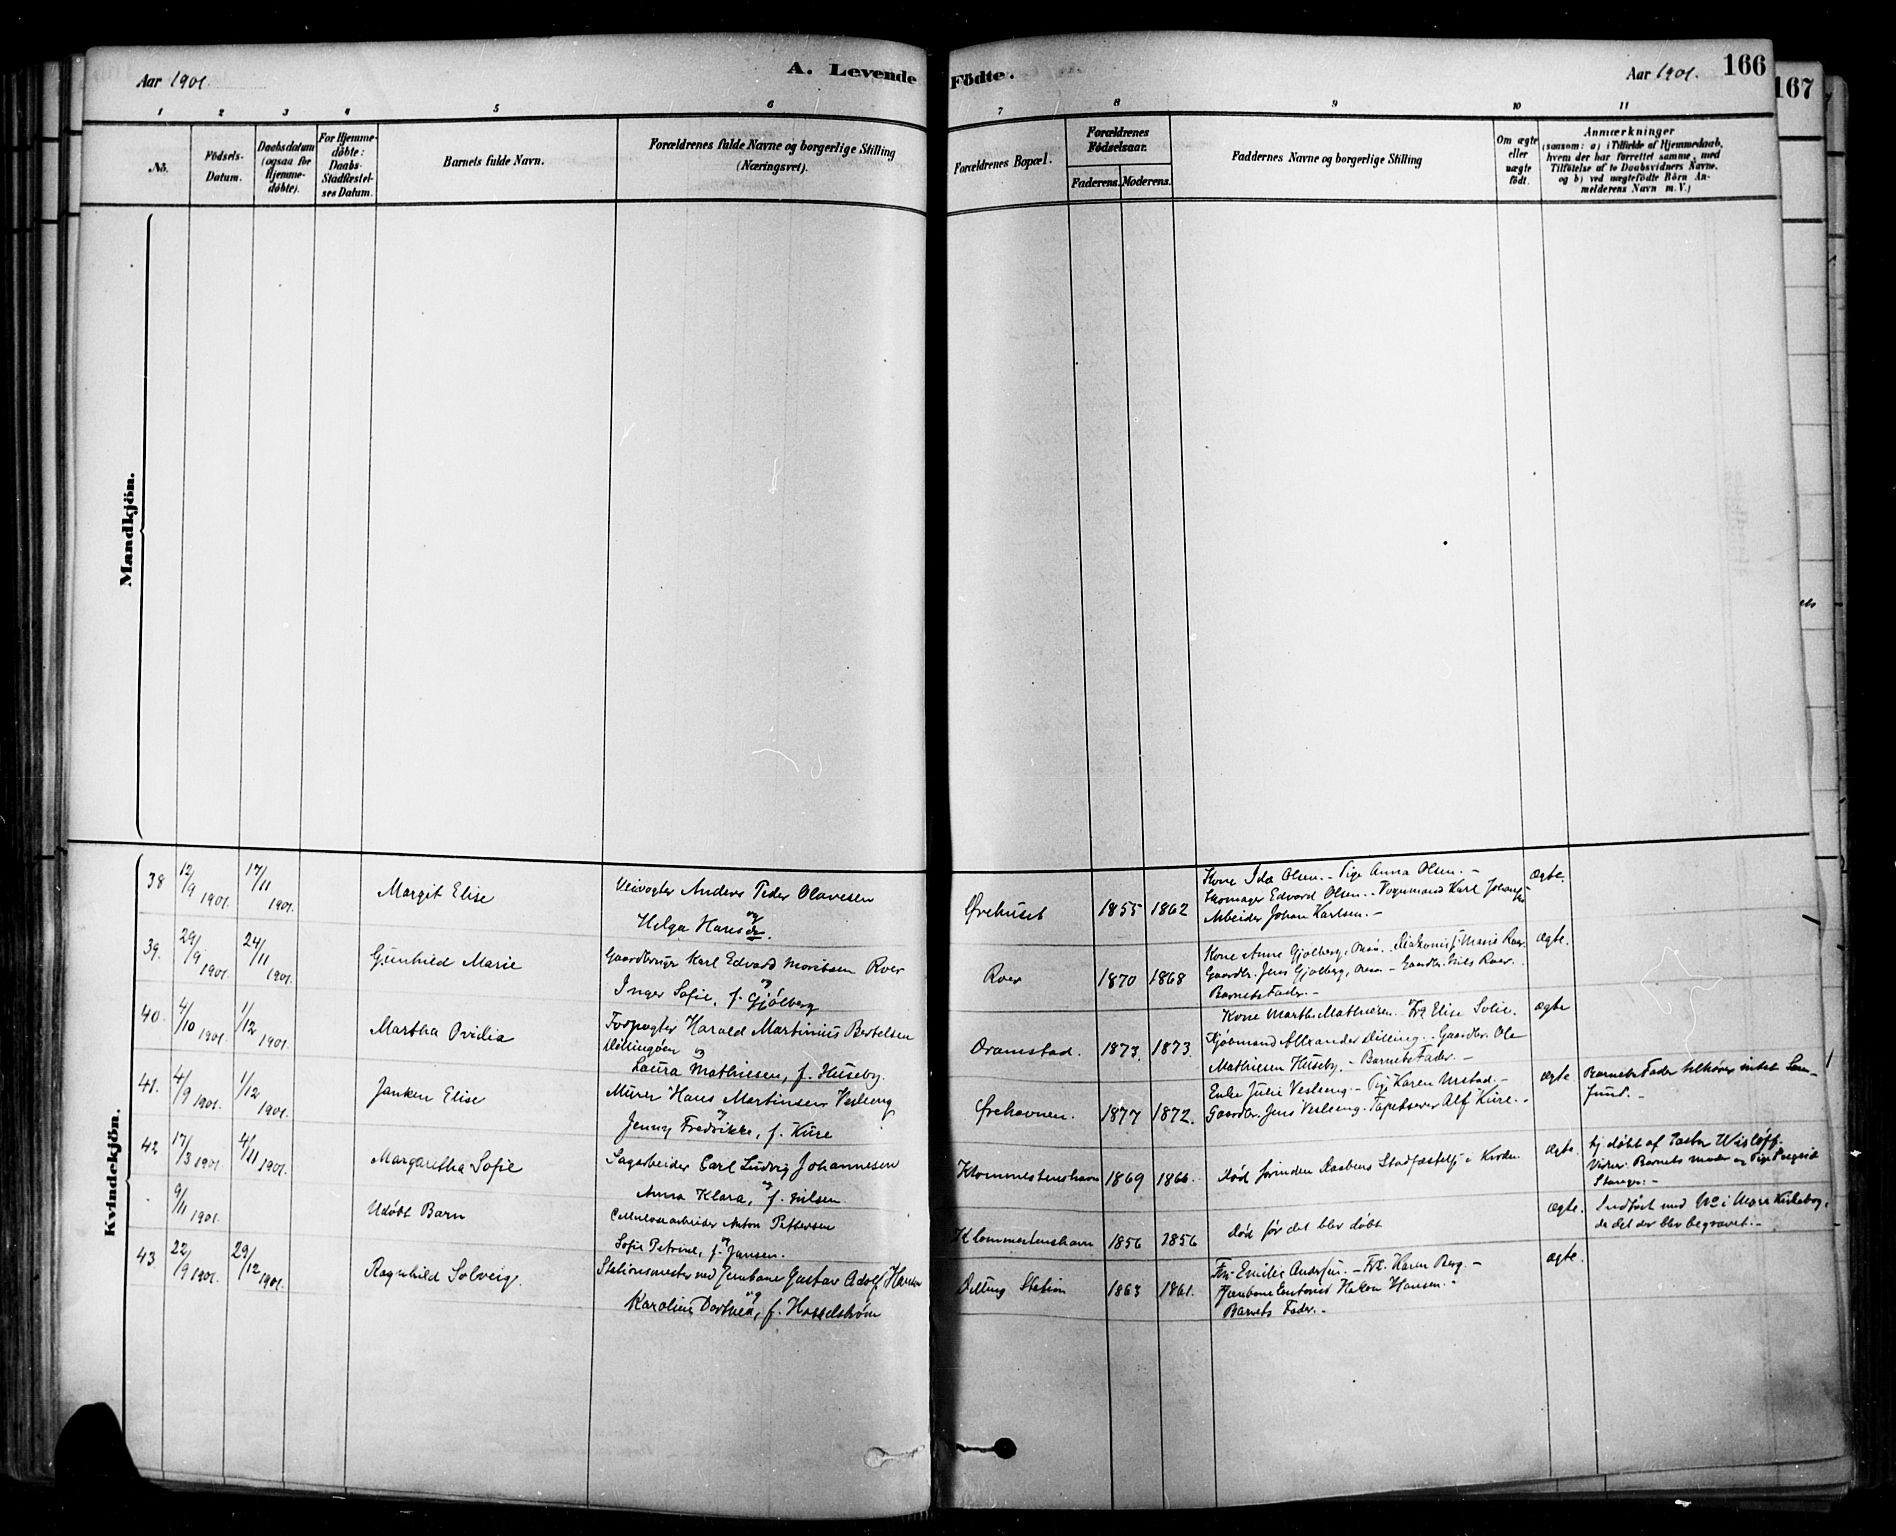 Aar 1901.
A. Levende Födte.
Aar 1901.
166
167
1 2 3 4 5 6 7 8 9 10 11
No.
Födsels-Datum.
Daabsdatum (ogsaa for Hjemme-döbte).
For Hjemme-döbte: Daabs-Stadfæstel-ses Datum.
Barnets fulde Navn.
Forældrenes fulde Navne og borgerlige Stilling (Næringsvei).
Forældrenes Bopæl.
Forældrenes Födselsaar.
Faderens. Moderens.
Faddernes Navne og borgerlige Stilling
Om ægte eller uægte födt.
Anmærkninger
(saasom: a) i Tilfælde af Hjemmedaab,
hvem der har forrettet samme, med
Tilföielse af to Daabsvidners Navne,
og b) ved uægtefödte Börn An-
melderens Navn m. V.)
Mandkjön.
Kvindekjön.
38 12/9 1901. 17/11 1901. Margit Elise
Veivogter Anders Peder Olavesen
og
Helga Hansdr.
Ørehuset 1855 1862
Kone Ida Olsen. - Pige Anna Olsen. -
Skomager Edvard Olsen. - Vognmand Karl Johans
Arbeider Johan Karlsen. -
ægte.
39. 29/9 1901. 24/11 1901. Gunhild Marie
Gaardbruger Karl Edvard Moritsen Roer
og
Inger Sofie, f. Gjølberg
Roer 1870 1868
Kone Anne Gjølberg, Marie Roer.
Gaardbr. Jens Gjølberg, - Gaardbr. Nils Roer.
Barnets Fader. -
ægte.
40. 4/10 1901. 1/12 1901. Martha Ovidia
Fodpogter Harald Martinius Bertelsen
Dillingøen og
Laura Mathiesen, f. Huseby.
Dramstad. 1873. 1873.
Kone Marthe Mathiesen. Frk Elise Solie.
Kjøbmand Alexander Dilling. - Gaardbr. Ole
Mathiesen Huseby. - Barnets Fader. -
ægte
41. 4/9 1901. 1/12 1901. Janken Elise
Murer Hans Martinsen Vesleng
og
Jenny Fredrikke, f. Kure
Ørehavnen. 1877 1872.
Enke Julie Vesleng. - Pige Karen Urstad. -
Gaardbr. Jens Vesleng. - Tapetserer Alf Kure. -
ægte
Barnets Fader tilhører intet Sam-
fund. -
42 17/3 1901. 4/11 1901. Margaretha Sofie
Sagarbeider Carl Ludvig Johannesen
og
Anna Klara, f. Nilsen
Klommestenshavn 1869 1866.
død forinden Daabens Stadfæstelse i Kirken
ægte.
hj. døbt af Pastor Wisløff.
Vidner: Barnets moder og Pige
Stanger. -
9/11 1901. Udøbt Barn
Cellulosearbeider Anton Pettersen
og
Sofie Petrine, f. Jansen.
Klommestenshavn 1856 1856
død før det blev døbt
ægte.
Indført med No i Moss Kirkebog,
da det der blev begravet. -
43. 22/9 1901. 29/12 1901. Ragnhild Solveig.
Stationsmester ved Jernbane Gustav Adolf Hansen
og
Karoline Dorthea, f. Hasselstrøm
Dilling Station 1863 1861.
Fru Emilie Andersen. - Frk. Karen Berg. -
Jernbane Hakon Hansen. -
Barnets Fader. -
ægte.